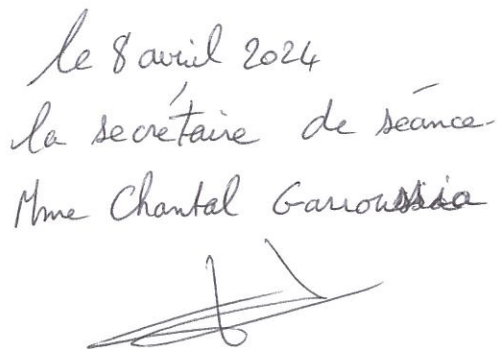 le 8 avril 2024
la secrétaire de séance.
Mme Chantal